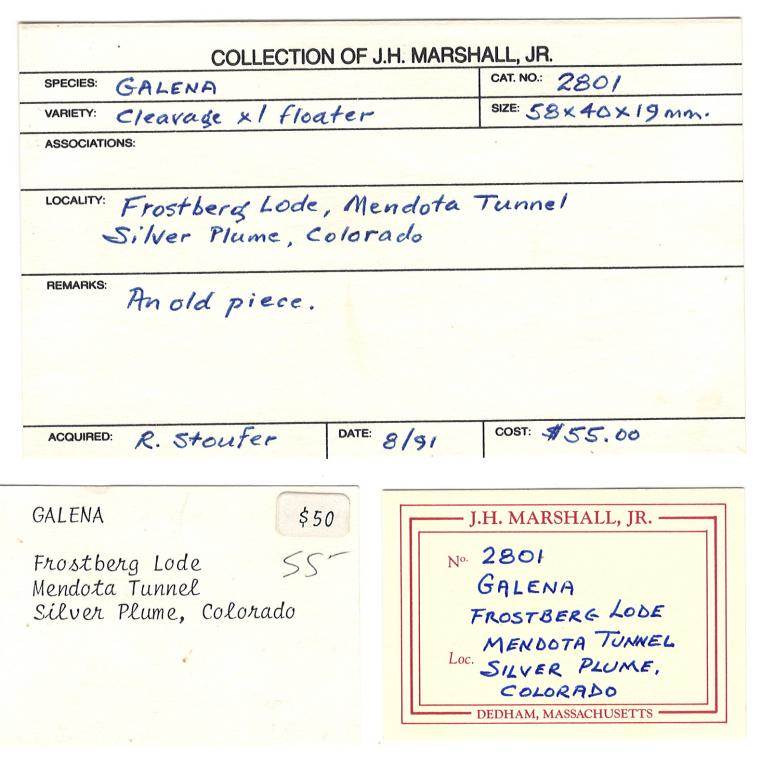 COLLECTION OF J.H. MARSHALL, JR.
SPECIES: GALENA
CAT. NO.: 2801
VARIETY: Cleavage xl floater
SIZE: 58x40x19mm.
ASSOCIATIONS:
LOCALITY: Frostberg Lode, Mendota Tunnel
Silver Plume, Colorado
REMARKS: An old piece.
ACQUIRED: R. Stoufer
DATE: 8/91
COST: $55.00
GALENA
$50
Frostberg Lode
55-
Mendota Tunnel
Silver Plume, Colorado
J.H. MARSHALL, JR.
No. 2801
GALENA
FROSTBERG LODE
MENDOTA TUNNEL
Loc. SILVER PLUME,
COLORADO
DEDHAM, MASSACHUSETTS